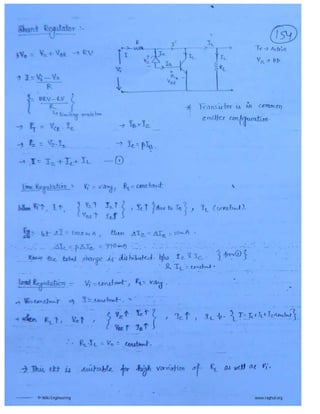 Shunt Regulator :-
154
→ V₀ = Vz + VBE → RV
Tr → Active
Vz → BD
→ I = Vi - V₀ / R
{ URV - RV / R }
limiting resistor
* Transistor is in common emitter configuration
→ PT = VCE . Ic → IB = Iz
→ Pz = Vz . Iz → Ic = βIB
→ I = Iz + Ic + IL — ①
Line Regulation :- Vi = vary, RL = constant
when Vi ↑, I ↑, { Vz ↑ Iz ↑ VBE ↑ IB ↑ }, Ic ↑ { due to IB }, IL (constant).
Eg:- let ΔI = 1000 mA, then ΔIz = ΔIB = 10 mA.
ΔIc = βΔIB = 990 mA
Hence the total change is distributed b/w Iz & Ic { from ① }
& IL = constant.
Load Regulation :- Vi = constant, RL = vary
→ Vi = constant ⇒ I = constant.
→ when RL ↑, V₀ ↑, { Vz ↑ Iz ↑ VBE ↑ IB ↑ }, Ic ↑, IL ↓. { I = Iz + Ic + IL = constant }
∴ RL . IL = V₀ = constant.
→ This ckt is suitable for high variation of RL as well as Vi.
© Wiki Engineering www.raghul.org